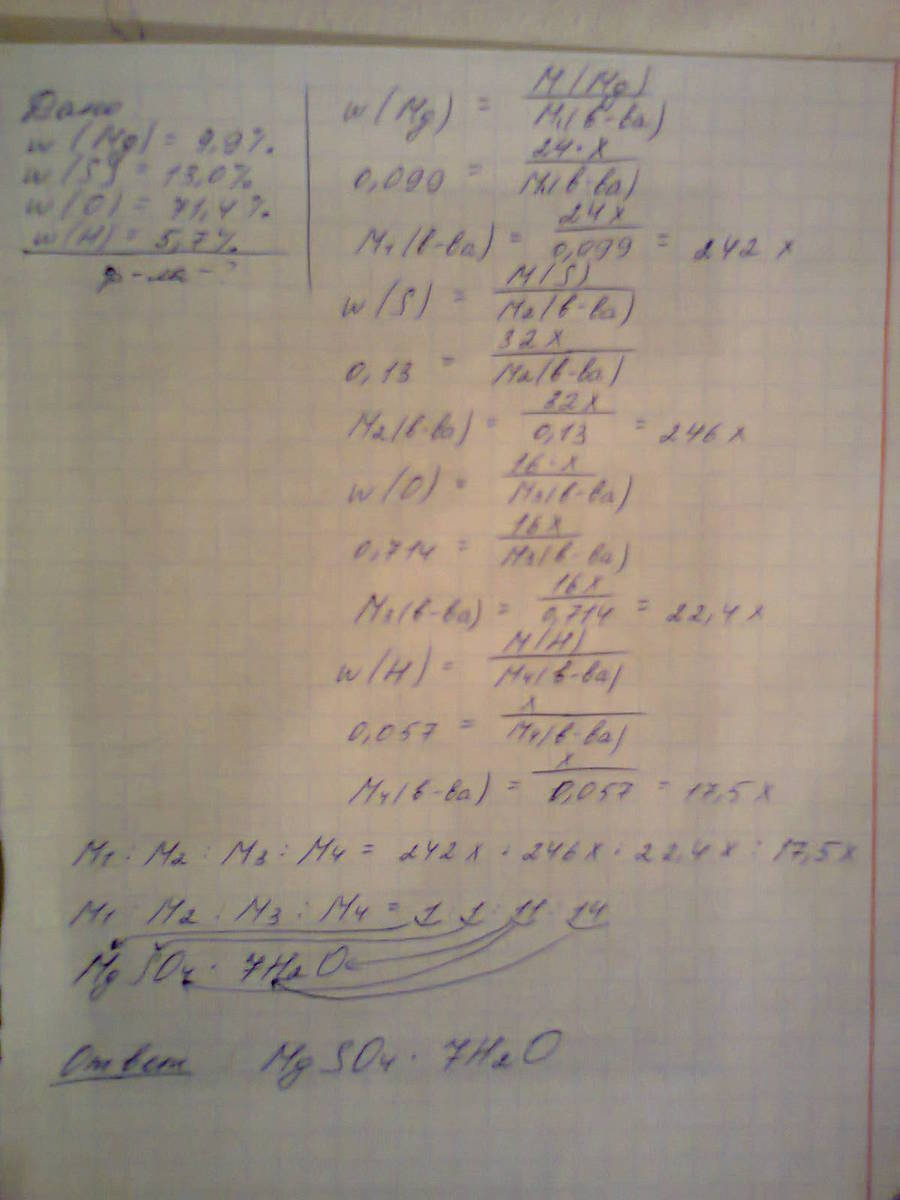 Дано
w (Mg) = 9,9%.
w (S) = 13,0%
w (O) = 71,4%.
w (H) = 5,7%.
ф-ла - ?
w (Mg) = M (Mg) / M1(в-ва)
0,099 = 24·x / M1(в-ва)
M1(в-ва) = 24x / 0,099 = 242 x
w (S) = M(S) / M2(в-ва)
0,13 = 32x / M2(в-ва)
M2(в-ва) = 32x / 0,13 = 246 x
w (O) = 16·x / M3(в-ва)
0,714 = 16x / M3(в-ва)
M3(в-ва) = 16x / 0,714 = 22,4x
w (H) = M(H) / M4(в-ва)
0,057 = x / M4(в-ва)
M4(в-ва) = x / 0,057 = 17,5x
M1 : M2 : M3 : M4 = 242x : 246x : 22,4x : 17,5x
M1 : M2 : M3 : M4 = 1 : 1 : 11 : 14
MgSO4 · 7H2O
Ответ MgSO4 · 7H2O